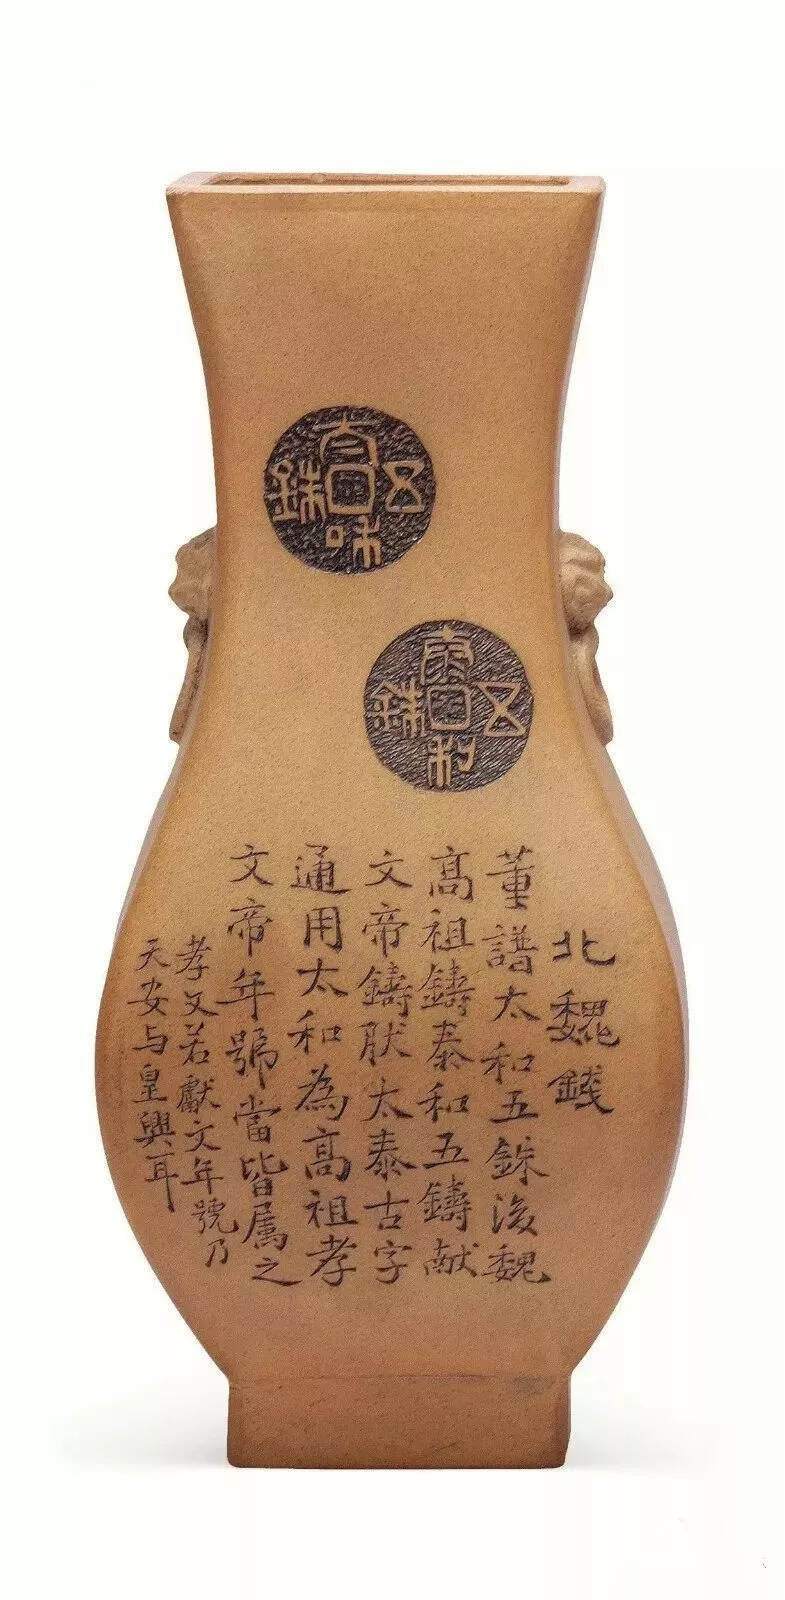 太咊五銖
泰和五銖
北魏錢
董譜太和五銖後魏
高祖鑄泰和五鑄献
文帝鑄肰太泰古字
通用太和為高祖孝
文帝年號當皆屬之
孝文若獻文年號乃
天安与皇興耳